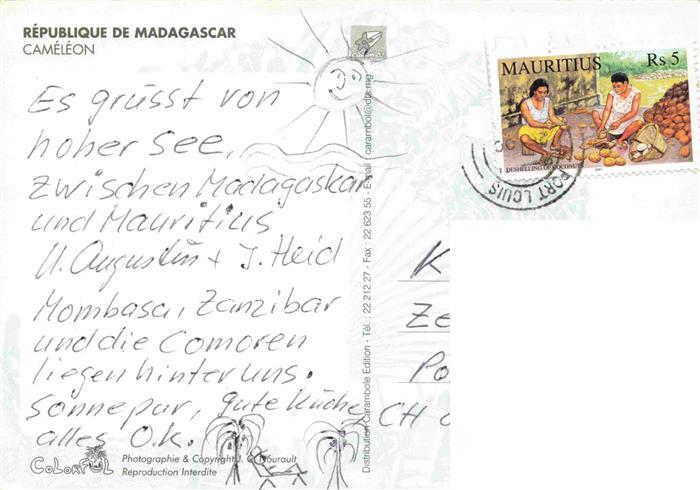 RÉPUBLIQUE DE MADAGASCAR
CAMÉLÉON
Es grüsst von
hoher See,
zwischen Madagaskar
und Mauritius
U. Augustin + J. Heid
Mombasa, Zanzibar
und die Comoren
liegen hinter uns.
Sonne pur, gute Küche,
alles O.K.
COLORFUL
Photographie & Copyright J. C. Nourault
Reproduction Interdite
Distribution Carambole Edition - Tél. : 22 212 27 - Fax : 22 623 55 - E-mail : carambol@dts.mg
MAURITIUS Rs 5
DESHELLING OF COCONUTS
PORT LOUIS
K
Ze
Po
CH